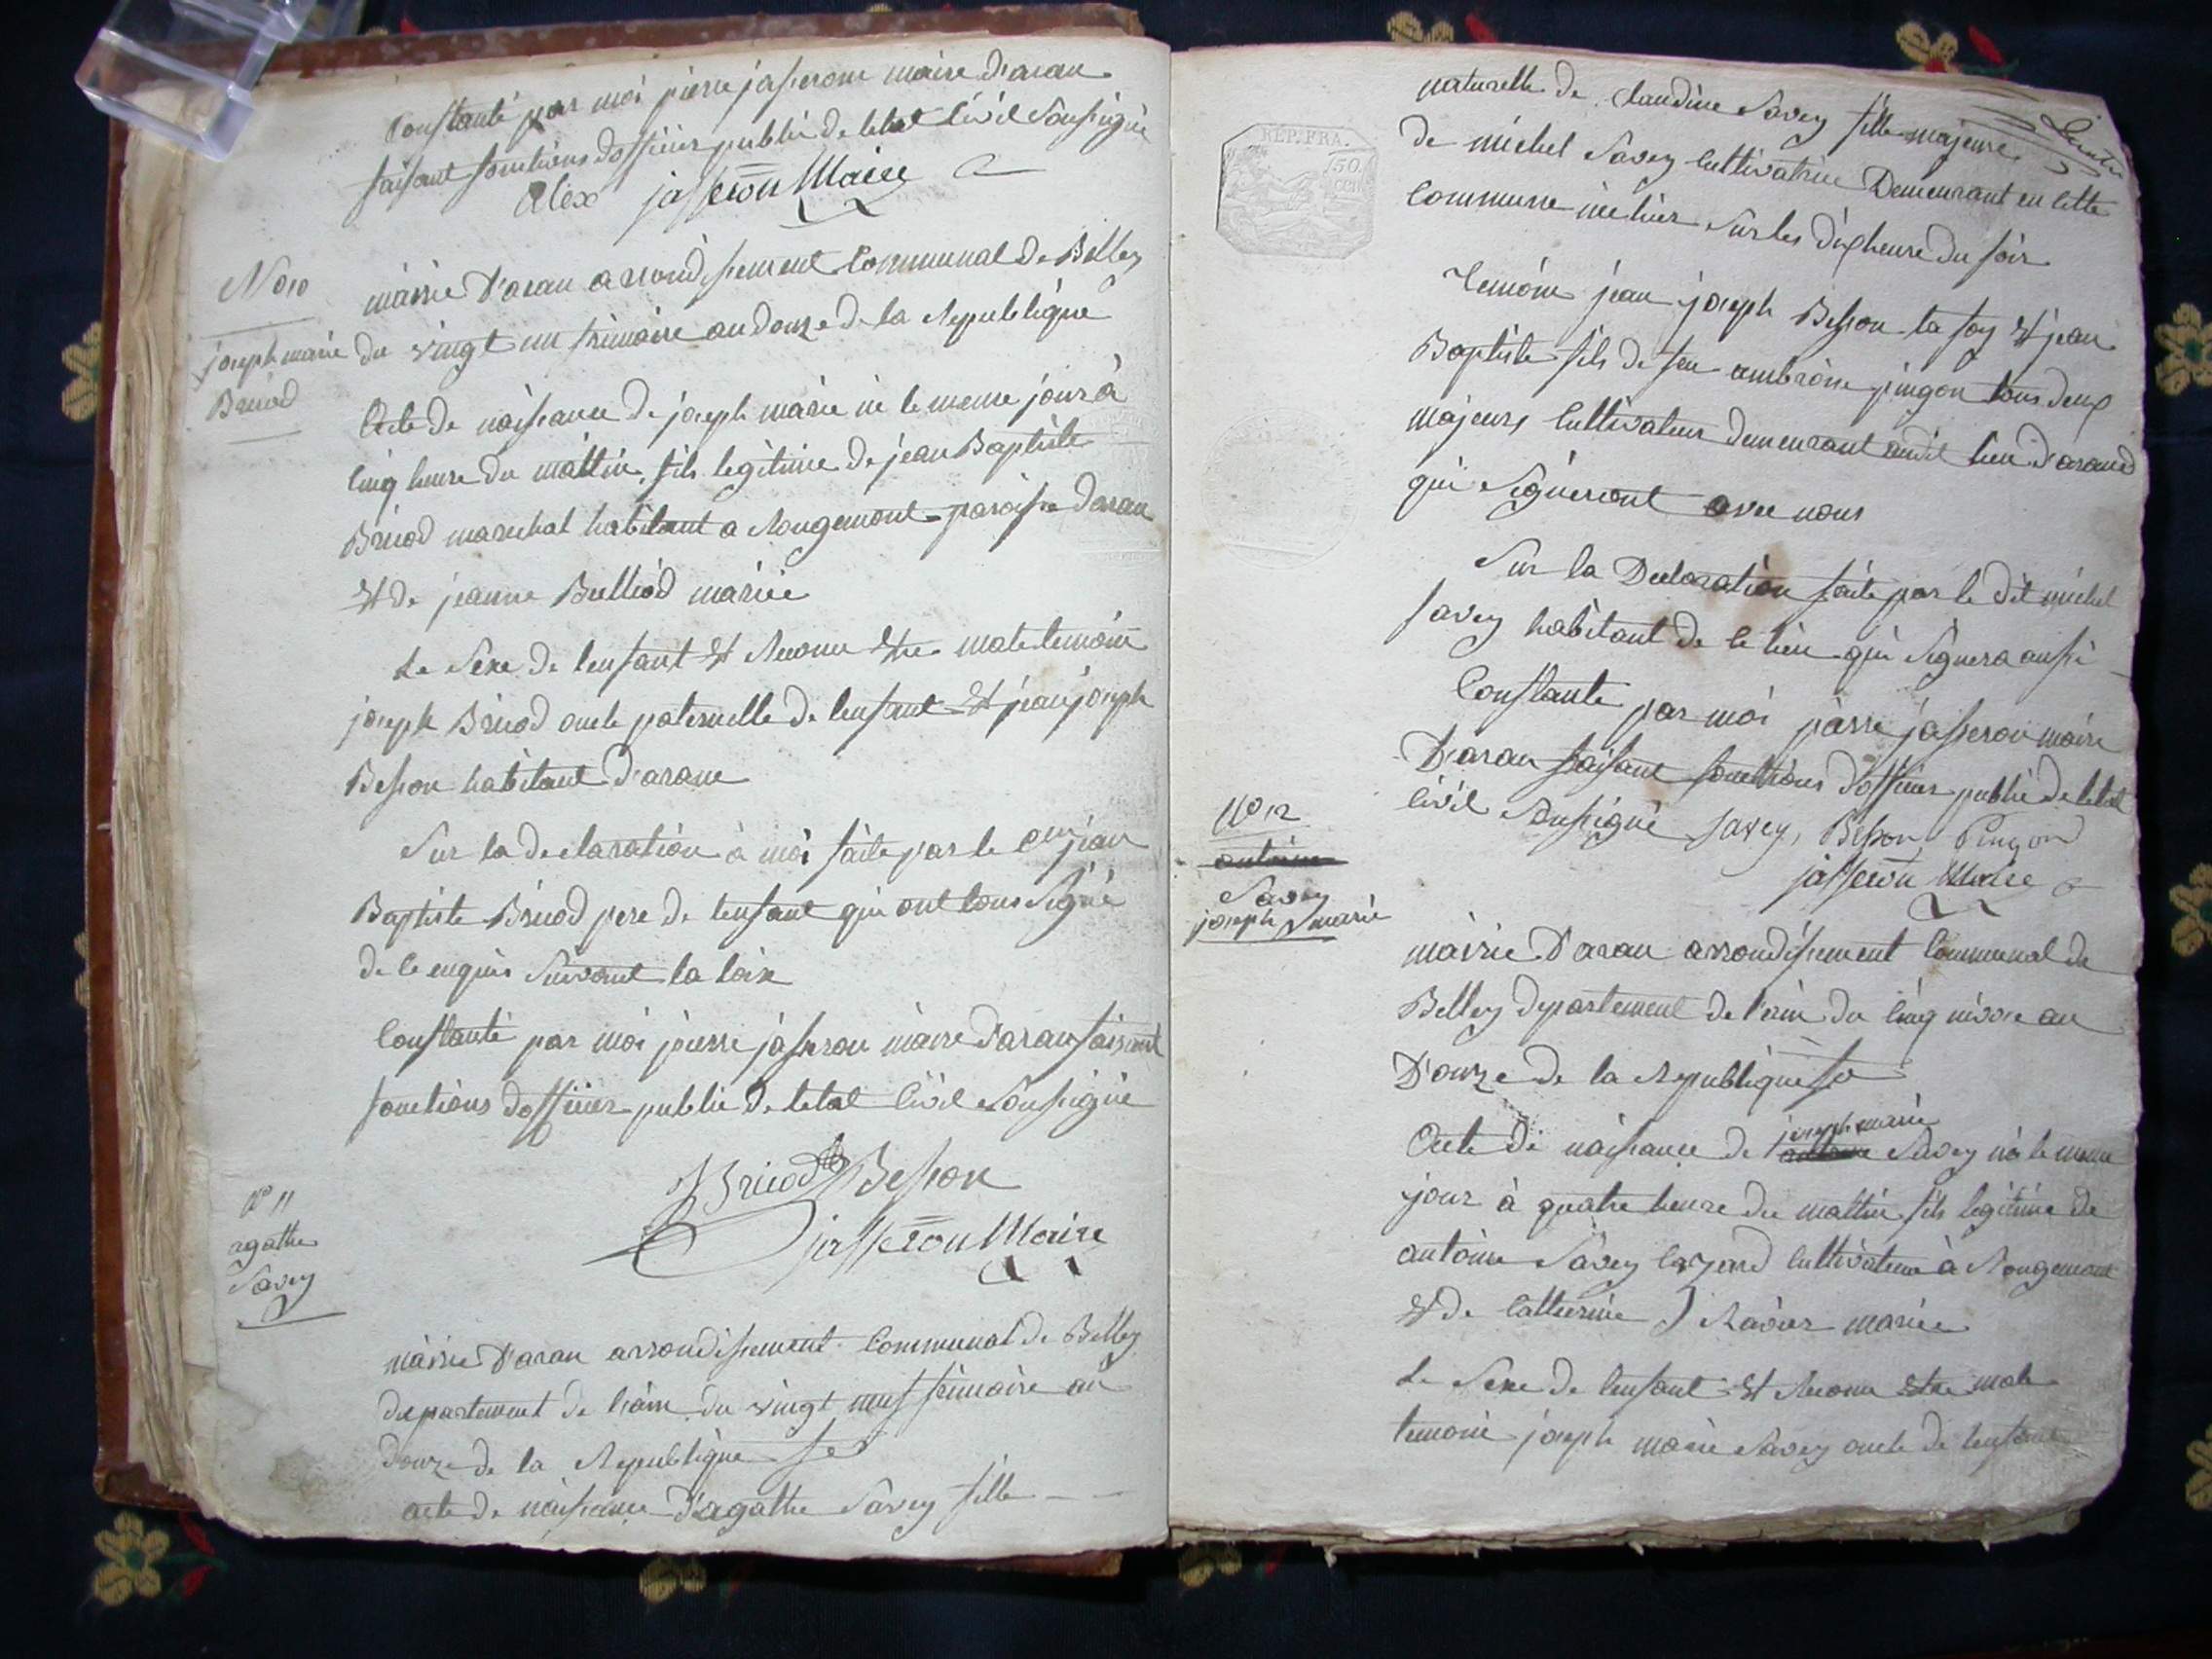 Constanté par moi pierre jasseron maire d'aran
faisant fonctions dofficier public de letat Civil Sousigné
Alex jasseron Maire
N° 10
joseph marie
Briod
mairie D'aran arrondissement Communal de Belley
du vingt un frimaire an douze de la Republique
Acte de naissance de joseph marie né le meme jour à
Cinq heure du mattin, fils legitime de jean Baptiste
Briod marechal habitant a Rougemont paroisse Daran
Et de jeanne Bulliod mariée
Le Sexe de lenfant Et Reconu Etre male temoin
joseph Briod oncle paternelle de lenfant Et jean joseph
Besson habitant d'arane
Sur la declaration à moi faite par le Cen jean
Baptiste Briod pere de lenfant qui ont tous Signé
de ce enquis Suivant la loix
Constanté par moi pierre jasseron maire Daran faisant
fonctions dofficier public de letat Civil Sousigné
Briod Besson
jasseron Maire
N° 11
agathe
Savey
mairie D'aran arrondissement Communal de Belley
departement de l'ain du vingt neuf frimaire an
douze de la Republique
acte de naissance D'agathe Savey fille
naturelle de Claudine Savey fille majeure
de michel Savey Cultivatrice Demeurant en Cette
Commune née hier Sur les dix heure du soir
REP. FRA.
50
CEN
Temoins jean joseph Besson Et jean
Baptiste fils de feu ambroise pingon tous deux
majeurs Cultivateurs demeurant audit lieu d'arand
qui Signeront avec nous
Sur la Declaration faite par le dit michel
Savey habitant de Ce lieu qui Signera aussi
Constanté par moi pierre jasseron maire
D'aran faisant fonctions dofficier public de letat
Civil Sousigné Savey, Besson Pingon
jasseron Maire
N° 12
antoine
Savey
joseph marie
mairie D'aran arrondissement Communal de
Belley departement de l'ain du Cinq nivose an
D'ouze de la Republique
joseph marie
Acte de naissance de antoine Savey né le meme
jour à quatre heure du mattin fils legitime de
antoine Savey Cultivateur à Rougemont
Et de Catherine Ravier mariée
Le Sexe de lenfant Et Reconu Etre male
temoin joseph marie Savey oncle de lenfant